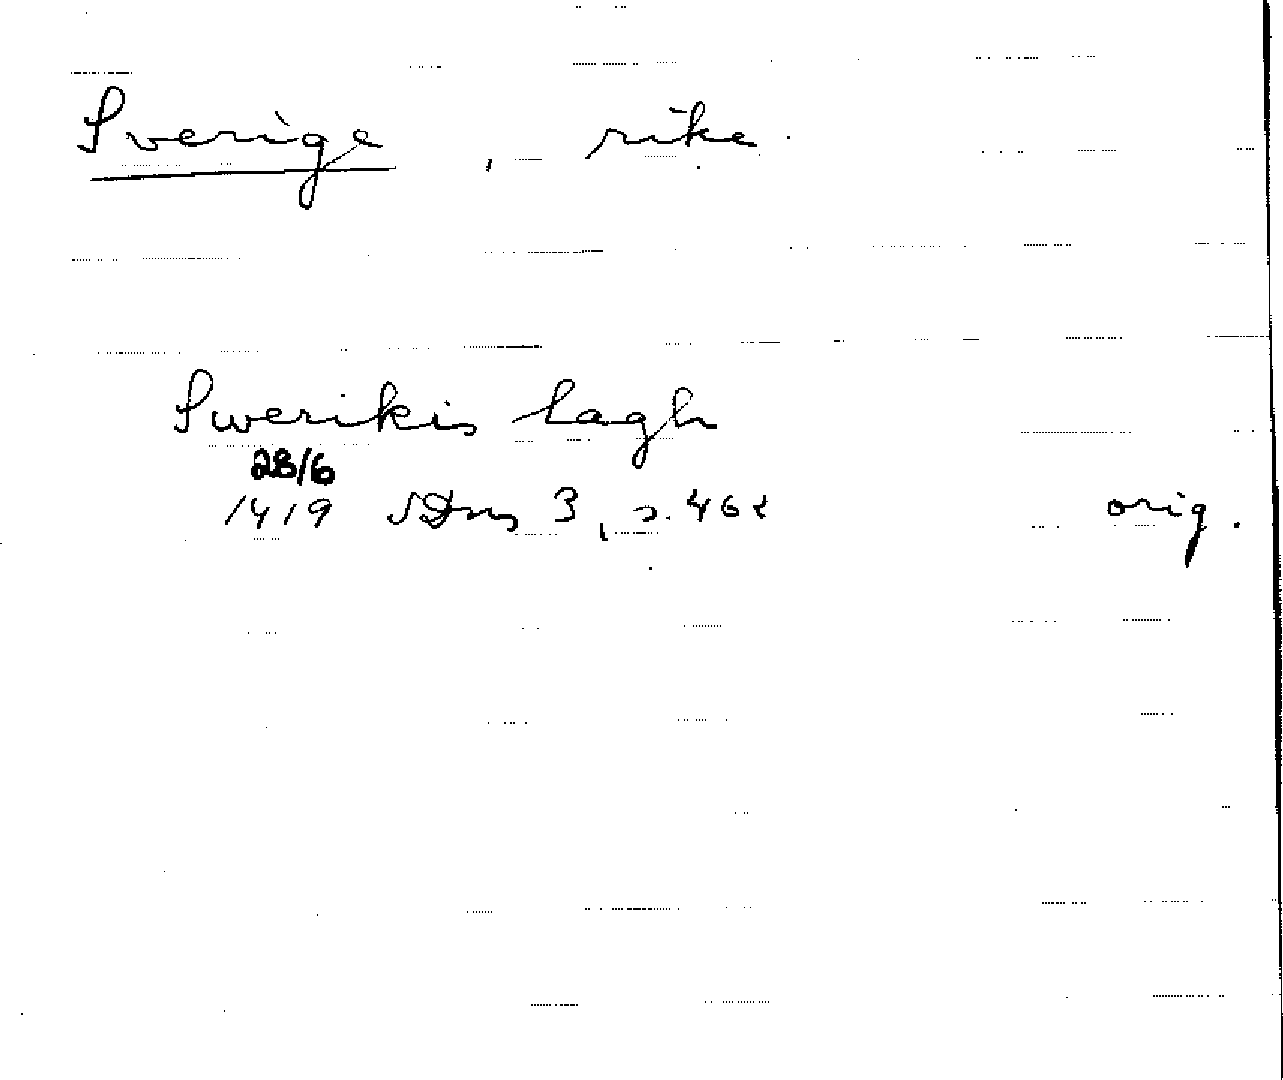 Sverige, rike.
Swerikis lagh
28/6
1419 SDns 3, s. 462 orig.